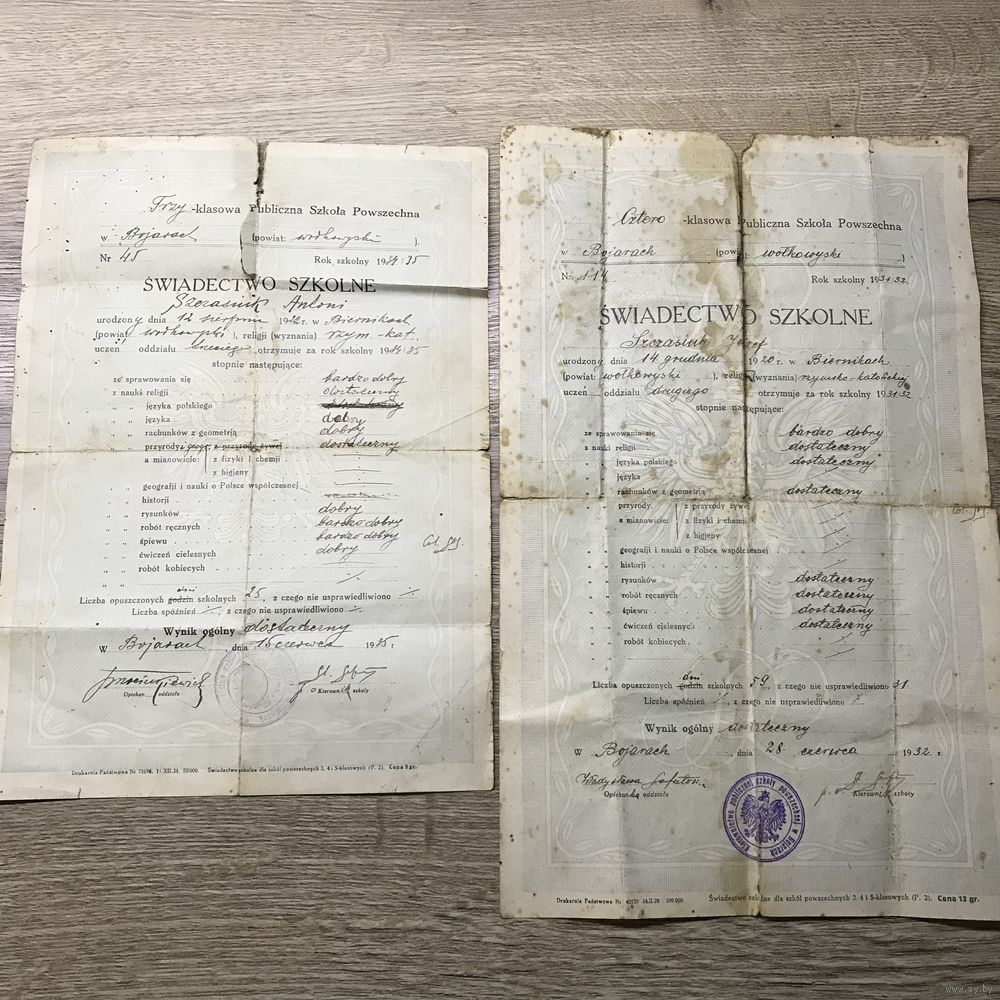 Trzy -klasowa Publiczna Szkoła Powszechna
w Bojarach (powiat: wołkowyski ).
Nr 45 Rok szkolny 1934/35
ŚWIADECTWO SZKOLNE
Szczasnik Antoni
urodzony dnia 12 sierpnia 1922 r. w Biernikach
(powiat: wołkowyski ), religji (wyznania) rzym-kat.
uczeń oddziału trzeciego otrzymuje za rok szkolny 1934/35
stopnie następujące:
ze sprawowania się bardzo dobry
z nauki religji dostateczny
„ „ języka polskiego
„ „ języka dobry
„ „ rachunków z geometrją dobry
przyrody z przyrody żywej dostateczny
a mianowicie: z fizyki i chemji
z higjeny
„ „ geografji i nauki o Polsce współczesnej
„ „ historji
„ „ rysunków dobry
„ „ robót ręcznych bardzo dobry
„ „ śpiewu bardzo dobry
„ „ ćwiczeń cielesnych dobry
„ „ robót kobiecych
Liczba opuszczonych godzin dni szkolnych 25, z czego nie usprawiedliwiono
Liczba spóźnień, z czego nie usprawiedliwiono
Wynik ogólny dostateczny
w Bojarach, dnia 15 czerwca 1935 r
Opiekun oddziału p. o Kierownik szkoły
Drukarnia Państwowa Nr 73696. 1. XII.34. 50000. Świadectwo szkolne dla szkół powszechnych 3, 4 i 5-klasowych (P. 2). Cena 8 gr.
Cztero -klasowa Publiczna Szkoła Powszechna
w Bojarach (powiat: wołkowyski )
Nr. 114 Rok szkolny 1931/32
ŚWIADECTWO SZKOLNE
Szczasiuk Józef
urodzony dnia 14 grudnia 1920 r. w Biernikach
(powiat: wołkowyski ), religji (wyznania) rzymsko-katolickiej
uczeń oddziału drugiego otrzymuje za rok szkolny 1931/32
stopnie następujące:
ze sprawowania się bardzo dobry
z nauki religji dostateczny
„ „ języka polskiego dostateczny
„ „ języka
„ „ rachunków z geometrją dostateczny
przyrody, z przyrody żywej
a mianowicie: z fizyki i chemji
z higjeny
„ „ geografji i nauki o Polsce współczesnej
„ „ historji
„ „ rysunków dostateczny
„ „ robót ręcznych dostateczny
„ „ śpiewu dostateczny
„ „ ćwiczeń cielesnych dostateczny
„ „ robót kobiecych
Liczba opuszczonych godzin dni szkolnych 59, z czego nie usprawiedliwiono 31
Liczba spóźnień, z czego nie usprawiedliwiono
Wynik ogólny dostateczny
w Bojarach, dnia 28 czerwca 1932 r.
Władysława
Opiekunka oddziału p. o. Kierownik szkoły
Kierownictwo publicznej szkoły powszechnej w Bojarach
Drukarnia Państwowa Nr 24.II.28 100.000. Świadectwo szkolne dla szkół powszechnych 3, 4 i 5-klasowych (P. 2). Cena 12 gr.
www.ay.by